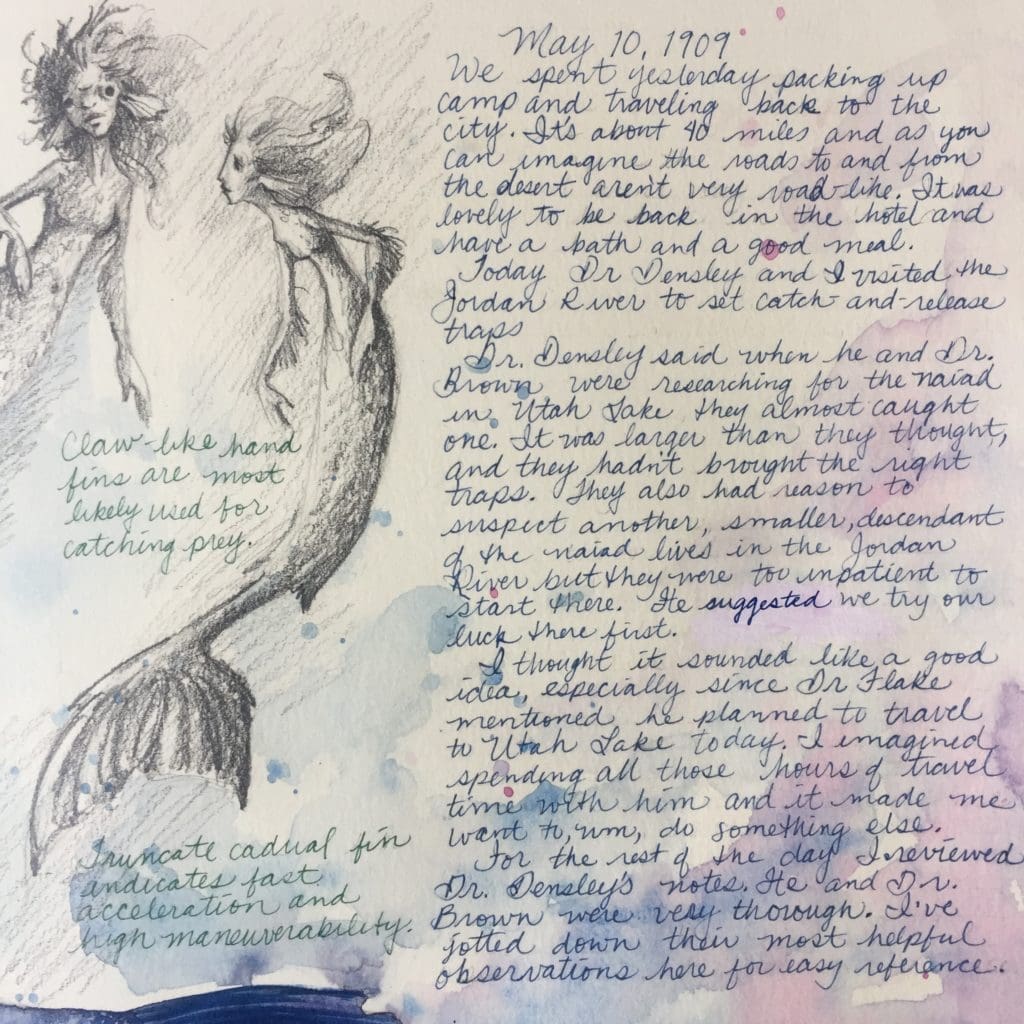 May 10, 1909
We spent yesterday packing up
camp and traveling back to the
city. It's about 40 miles and as you
can imagine the roads to and from
the desert aren't very road-like. It was
lovely to be back in the hotel and
have a bath and a good meal.
Today Dr Densley and I visited the
Jordan River to set catch-and-release
traps
Dr. Densley said when he and Dr.
Brown were researching for the naiad
in Utah Lake they almost caught
one. It was larger than they thought,
and they hadn't brought the right
traps. They also had reason to
suspect another, smaller, descendant
of the naiad lives in the Jordan
River but they were too inpatient to
start there. He suggested we try our
luck there first.
I thought it sounded like a good
idea, especially since Dr Flake
mentioned he planned to travel
to Utah Lake today. I imagined
spending all those hours of travel
time with him and it made me
want to, um, do something else.
For the rest of the day I reviewed
Dr. Densley's notes. He and Dr.
Brown were very thorough. I've
jotted down their most helpful
observations here for easy reference.
Claw-like hand
fins are most
likely used for
catching prey.
Truncate cadual fin
indicates fast
acceleration and
high maneuverability.